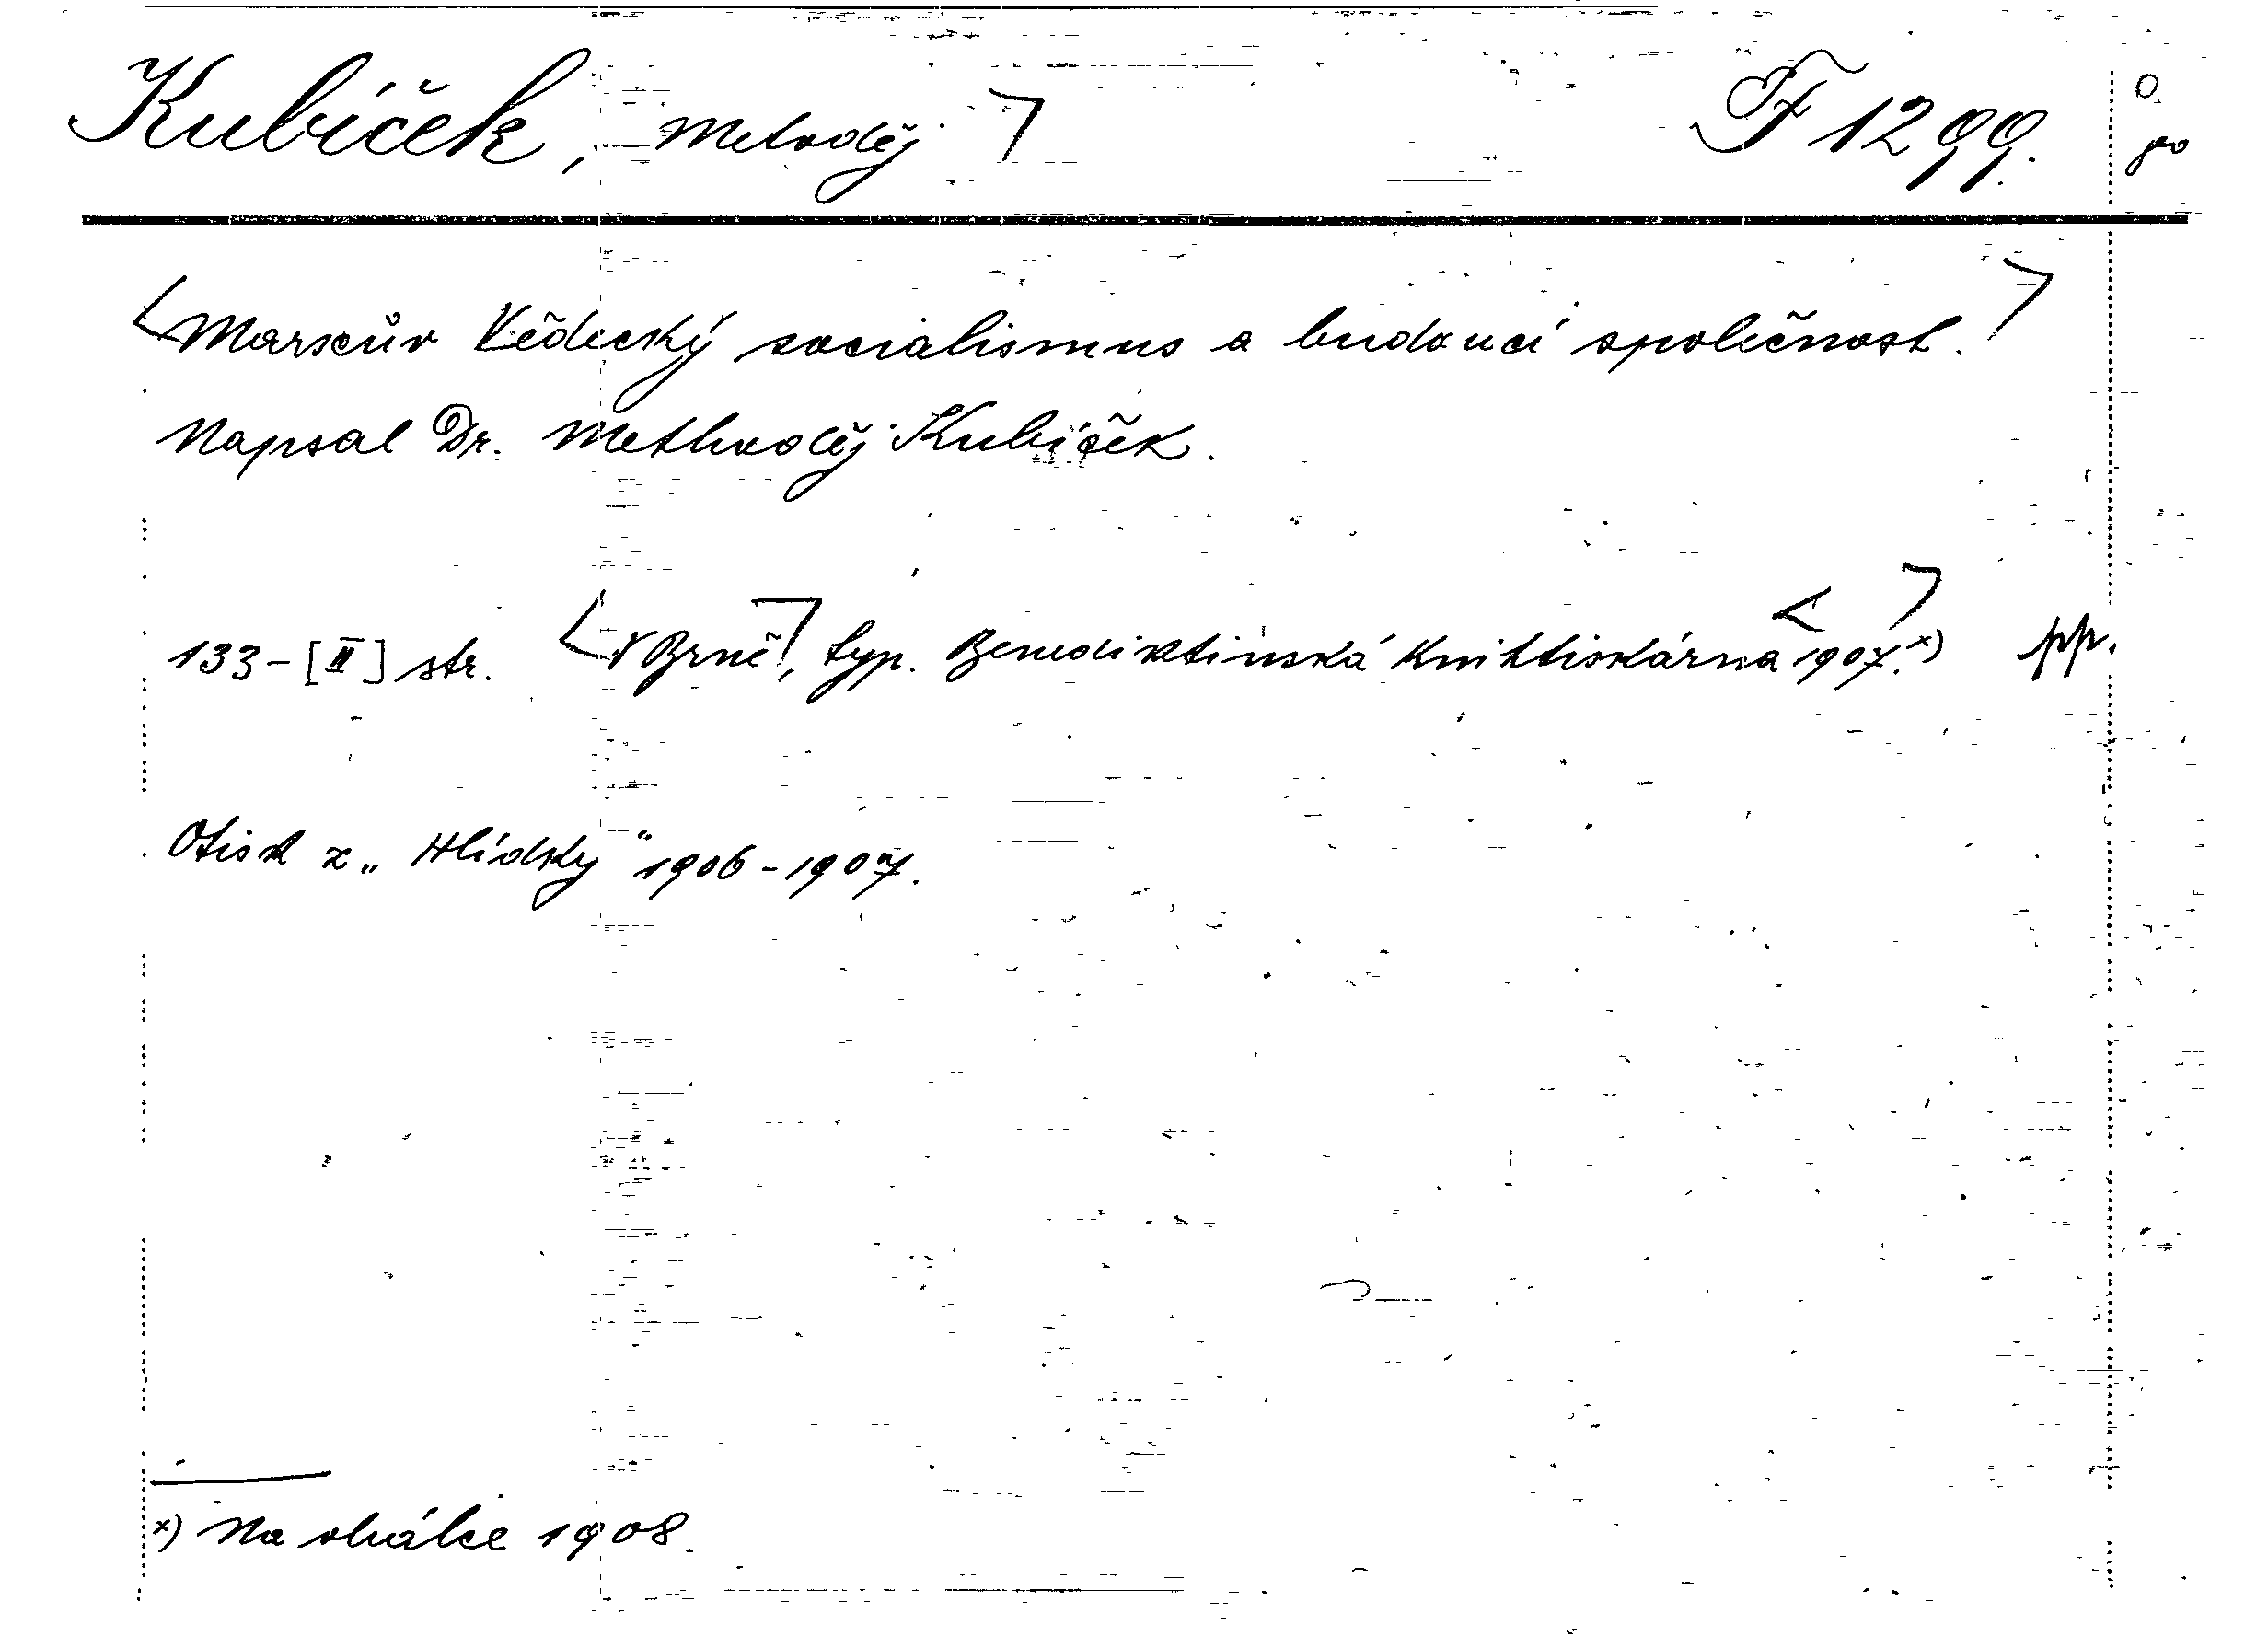 Kubíček, Metoděj F 1299.
Marxův Vědecký socialismus a budoucí společnost.
Napsal Dr. Methoděj Kubíček.
133-[II] str. V Brně, typ. Benediktinská knihtiskárna 1907.x) pp.
Otisk z „Hlídky“ 1906-1907.
x) Na obálce 1908.